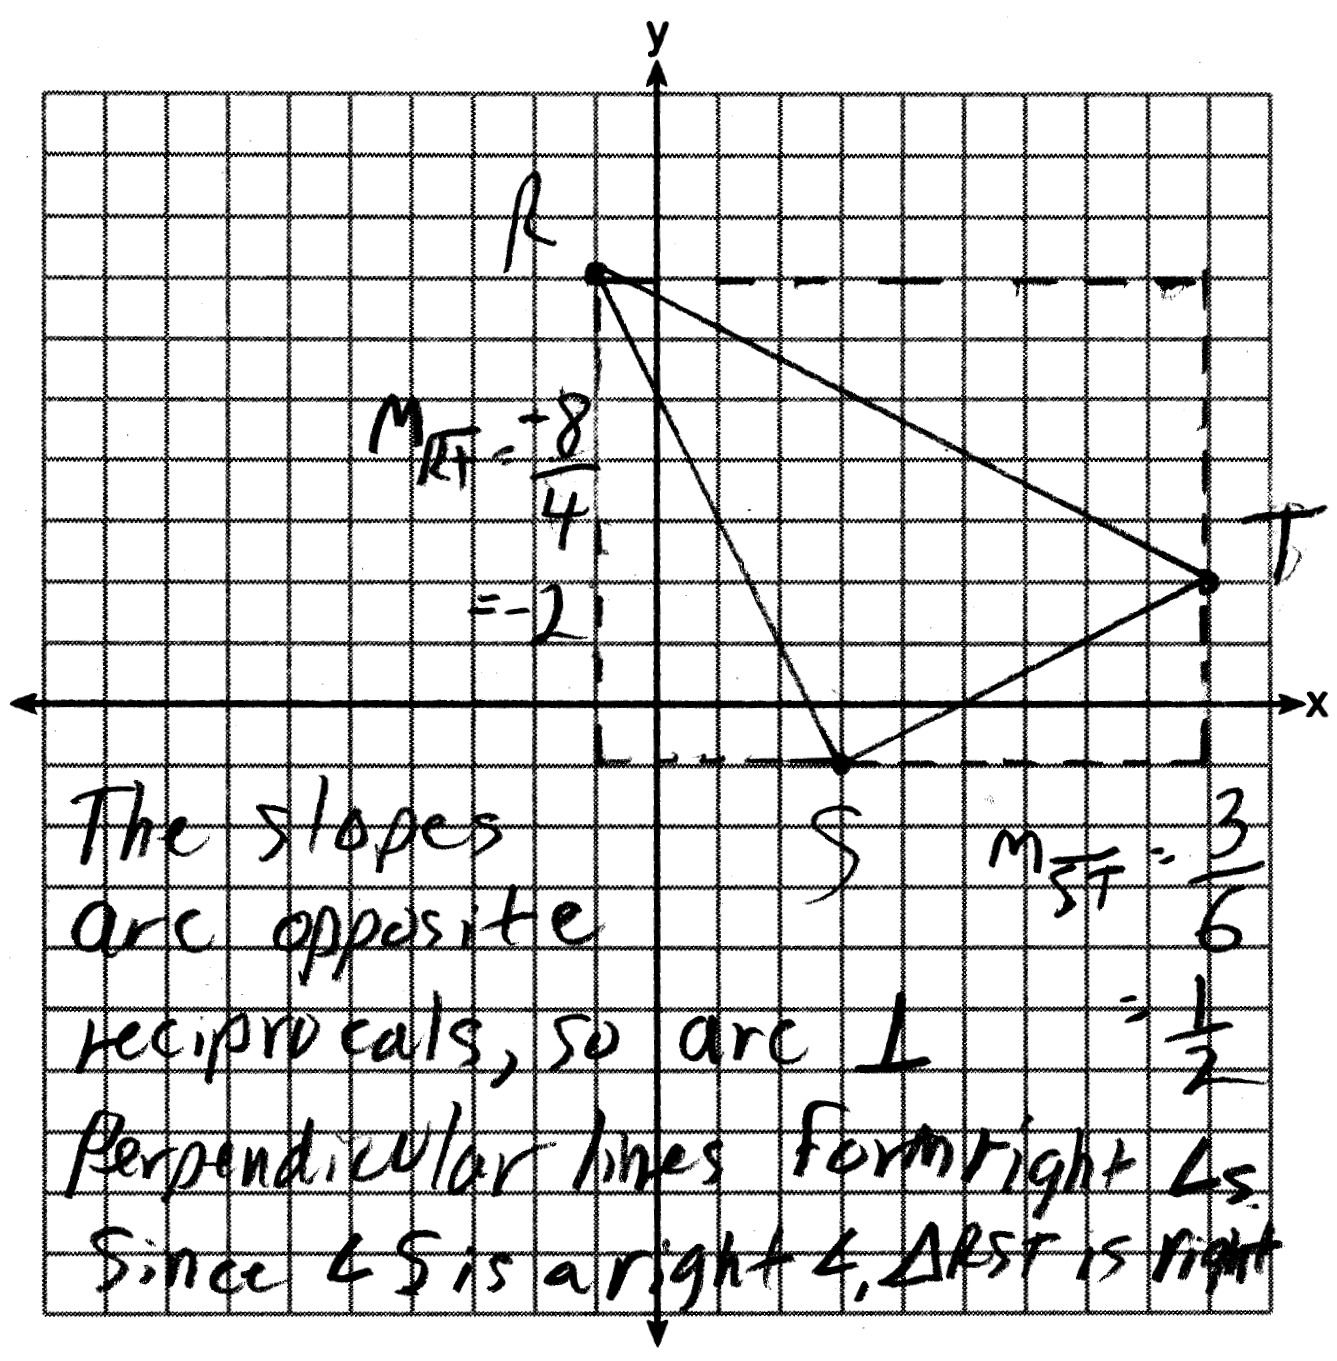 y
R
m_RT = -8/4
= -2
T
x
S
m_ST = 3/6
= 1/2
The slopes
are opposite
reciprocals, so are ⊥
Perpendicular lines form right ∠s.
Since ∠S is a right ∠, △RST is right